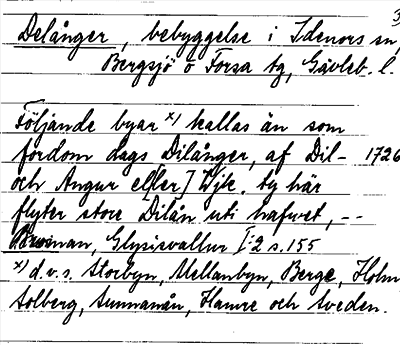 3
Delånger, bebyggelse i Idenors sn,
Bergsjö o Forsa tg, Gävleb. l.
Följande byar x) kallas än som
fordom dags Dilånger, af Dil- 1726
och Angur el[ler] Wjk. ty här
flyter store Dilån uti hafwet, --
Broman, Glysisvallur I:2 s. 155
x) d.v.s. Storbyn, Mellanbyn, Berge, Holm,
Solberg, Sunnanån, Hamre och Sveden.